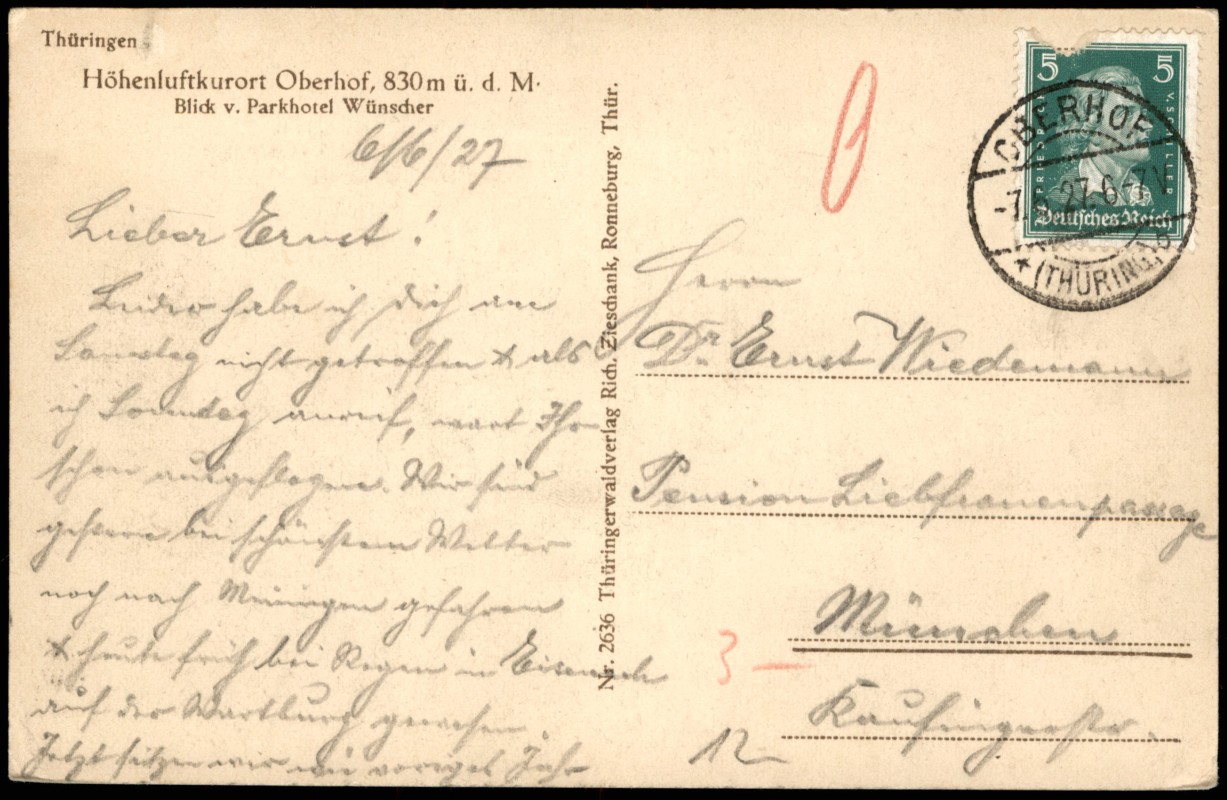 Thüringen
Höhenluftkurort Oberhof, 830 m ü. d. M.
Blick v. Parkhotel Wünscher
6/6/27
Lieber Ernst!
Leider habe ich dich am
Samstag nicht getroffen & als
ich Sonntag anrief, wart Ihr
schon ausgeflogen. Wir sind
gestern bei schönstem Wetter
noch nach Meiningen gefahren
& heute früh bei Regen in Eisenach
auf der Wartburg gewesen.
Jetzt sitzen wir wie voriges Jahr
Nr. 2636 Thüringerwaldverlag Rich. Zieschank, Ronneburg, Thür.
5 5
FRIEDRICH V. SCHILLER
Deutsches Reich
OBERHOF
-7. 6. 27. 6-7 V
* (THÜRING.)
Herrn
Dr. Ernst Wiedemann
Pension Liebfrauenpassage
München
Kaufingerstr.
3 —
12 —